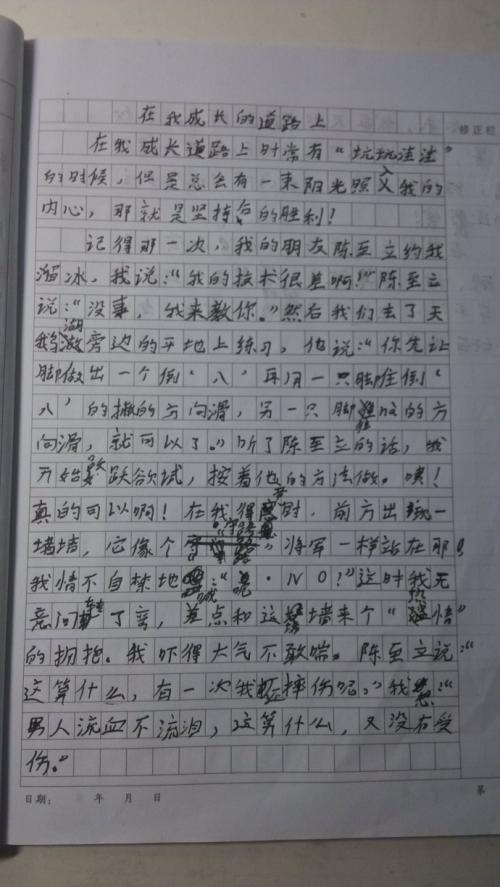 修正栏
在我成长的道路上
在我成长道路上时常有“坑坑洼洼”
的时候，但是总会有一束阳光照入我的
内心，那就是坚持后的胜利！
记得那一次，我的朋友陈至立约我
溜冰，我说：“我的技术很差啊！”陈至立
说：“没事，我来教你。”然后我们去了天
鹅湖旁边的平地上练习，他说：“你先让
脚做出一个倒‘八’再用一只脚往倒‘
八’的撇的方向滑，另一只脚往捺的方
向滑，就可以了。”听了陈至立的话，我
开始跃跃欲试，按着他的方法做。噢！
真的可以啊！在我得意时，前方出现一
墙墙，它像个“”将军一样站在那！
我情不自禁地喊：“NO！”这时我无
意间转了弯，差点和这堵墙来个“热情”
的拥抱。我吓得大气不敢喘。陈至立说：“
这算什么，有一次我还摔伤呢。”我想：“
男人流血不流泪，这算什么，又没有受
伤。”
日期： 年 月 日
第